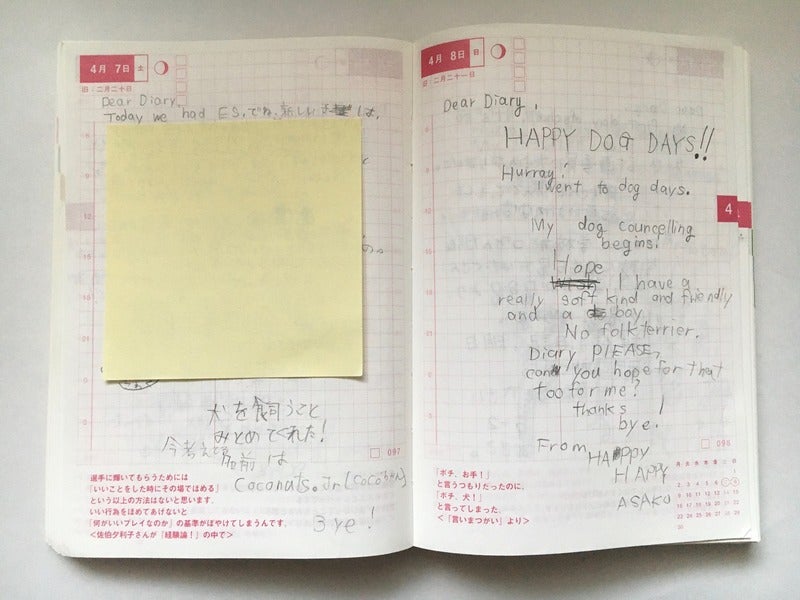 4月 7日 土
旧:二月二十日
Dear Diary,
Today we had ES。でね、新しい
犬を飼うこと
みとめてくれた!
今考えと
名前は
Coconuts。Jr(cocoちゃん)
Bye!
097
選手に輝いてもらうためには
「いいことをした時にその場でほめる」
という以上の方法はないと思います。
いい行為をほめてあげないと
「何がいいプレイなのか」の基準がぼやけてしまうんです。
<佐伯夕利子さんが「経験論!」の中で>
4月 8日 日
旧:二月二十一日
Dear Diary,
HAPPY DOG DAYS!!
Hurray!
I went to dog days.
4
My dog councelling
begins!
Hope
I have a
really soft kind and friendly
and a boy
No folkterrier.
Diary PLEASE,
can you hope for that
too for me?
thanks!
bye!
From HAPPY
HAPPY
ASAKO
098
「ポチ、お手!」
と言うつもりだったのに、
「ポチ、犬!」
と言ってしまった。
<「言いまつがい」より>
月 火 水 木 金 土 日
1
2 3 4 5 6 7 8
9 10 11 12 13 14 15
16 17 18 19 20 21 22
23 24 25 26 27 28 29
30